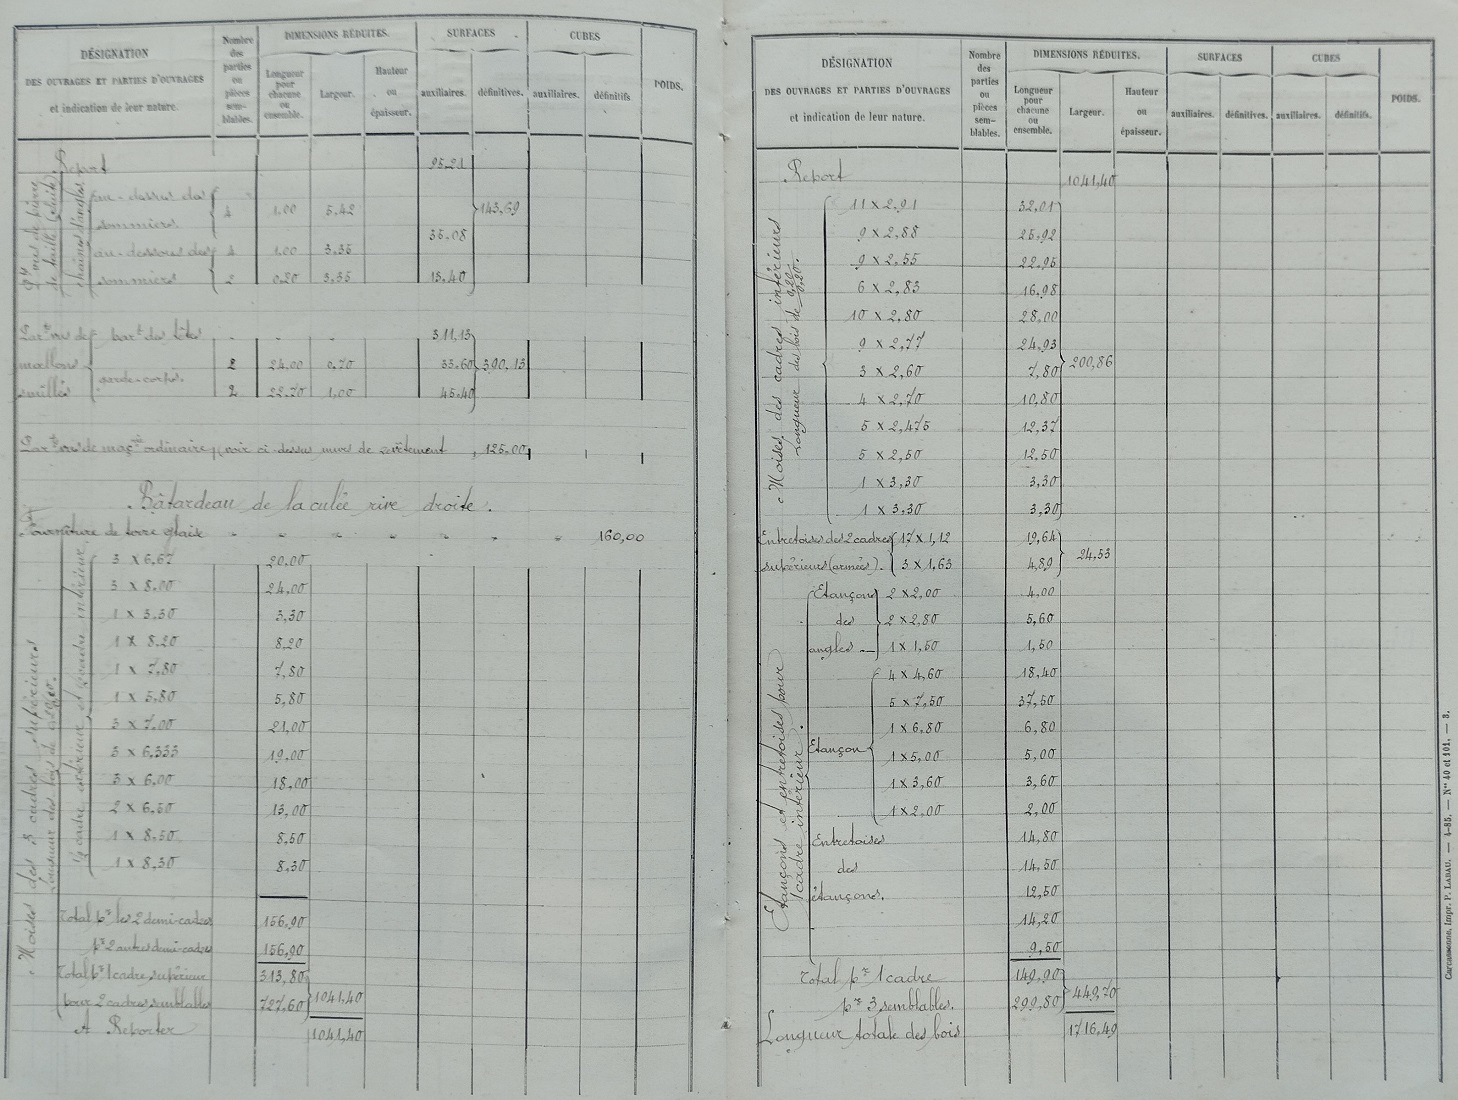 DÉSIGNATION
DES OUVRAGES ET PARTIES D'OUVRAGES
et indication de leur nature.
Nombre des parties ou pièces sem-blables.
DIMENSIONS RÉDUITES.
Longueur pour chacune ou ensemble.
Largeur.
Hauteur ou épaisseur.
SURFACES
auxiliaires.
définitives.
CUBES
auxiliaires.
définitifs
POIDS.
Report 95.21
chaînes d'angles
au-dessus des sommiers 4 1.00 5.42 143,69
35.08
au-dessous des 4 1.00 3.35
sommiers 2 0,20 3.35 13.40
Par.ts vus de part. des têtes 311,13
moellons 2 24.00 0,70 33.60 390.13
garde-corps.
smillés 2 22.70 1,00 45.40
Par.ts vus de maç.rie ordinaire, (voir ci-dessus murs de revêtement 125.00
Bâtardeau de la culée rive droite.
Fourniture de terre glaise " " " " " " " 160,00
Moises des 3 cadres supérieurs
Longueur des bois de
1/2 cadre extérieur et 1/2 cadre intérieur
3 x 6,67 20.00
3 x 8.00 24,00
1 x 3.30 3,30
1 x 8.20 8,20
1 x 7,80 7,80
1 x 5,80 5,80
3 x 7.00 21,00
3 x 6,333 19,00
3 x 6.00 18,00
2 x 6.50 13,00
1 x 8,50 8,50
1 x 8,30 8,30
Total pr les 2 demi-cadres 156,90
pr 2 autres demi-cadres 156,90
Total pr 1 cadre supérieur 313,80
pour 2 cadres semblables 727,60 1041,40
A Reporter 1041,40
DÉSIGNATION
DES OUVRAGES ET PARTIES D'OUVRAGES
et indication de leur nature.
Nombre des parties ou pièces sem-blables.
DIMENSIONS RÉDUITES.
Longueur pour chacune ou ensemble.
Largeur.
Hauteur ou épaisseur.
SURFACES
auxiliaires.
définitives.
CUBES
auxiliaires.
définitifs.
POIDS.
Report 1041,40
Moises des cadres intérieurs
Longueur des bois de 0,20/0,20.
11 x 2,91 32,01
9 x 2,88 25,92
9 x 2,55 22,95
6 x 2,83 16,98
10 x 2,80 28,00
9 x 2,77 24,93
3 x 2,60 7,80 200,86
4 x 2,70 10,80
5 x 2,475 12,37
5 x 2,50 12,50
1 x 3,30 3,30
1 x 3,30 3,30
Entretoises des 2 cadres 17 x 1,12 19,64
24,53
supérieurs (armées). 3 x 1,63 4,89
Etançons et entretoises pour
1 cadre intérieur.
Etançons 2 x 2,00 4,00
des 2 x 2,80 5,60
angles 1 x 1,50 1,50
4 x 4,60 18,40
5 x 7,50 37,50
1 x 6,80 6,80
Etançon 1 x 5,00 5,00
1 x 3,60 3,60
1 x 2,00 2,00
Entretoises 14,80
des 14,50
étançons. 12,50
14,20
9,50
Total pr 1 cadre 149,90
pr 3 semblables. 299,80 449,70
Longueur totale des bois 1716,49
Carcassonne, Impr. P. LABAU. — 4-85. — Nos 40 et 101. — 3.